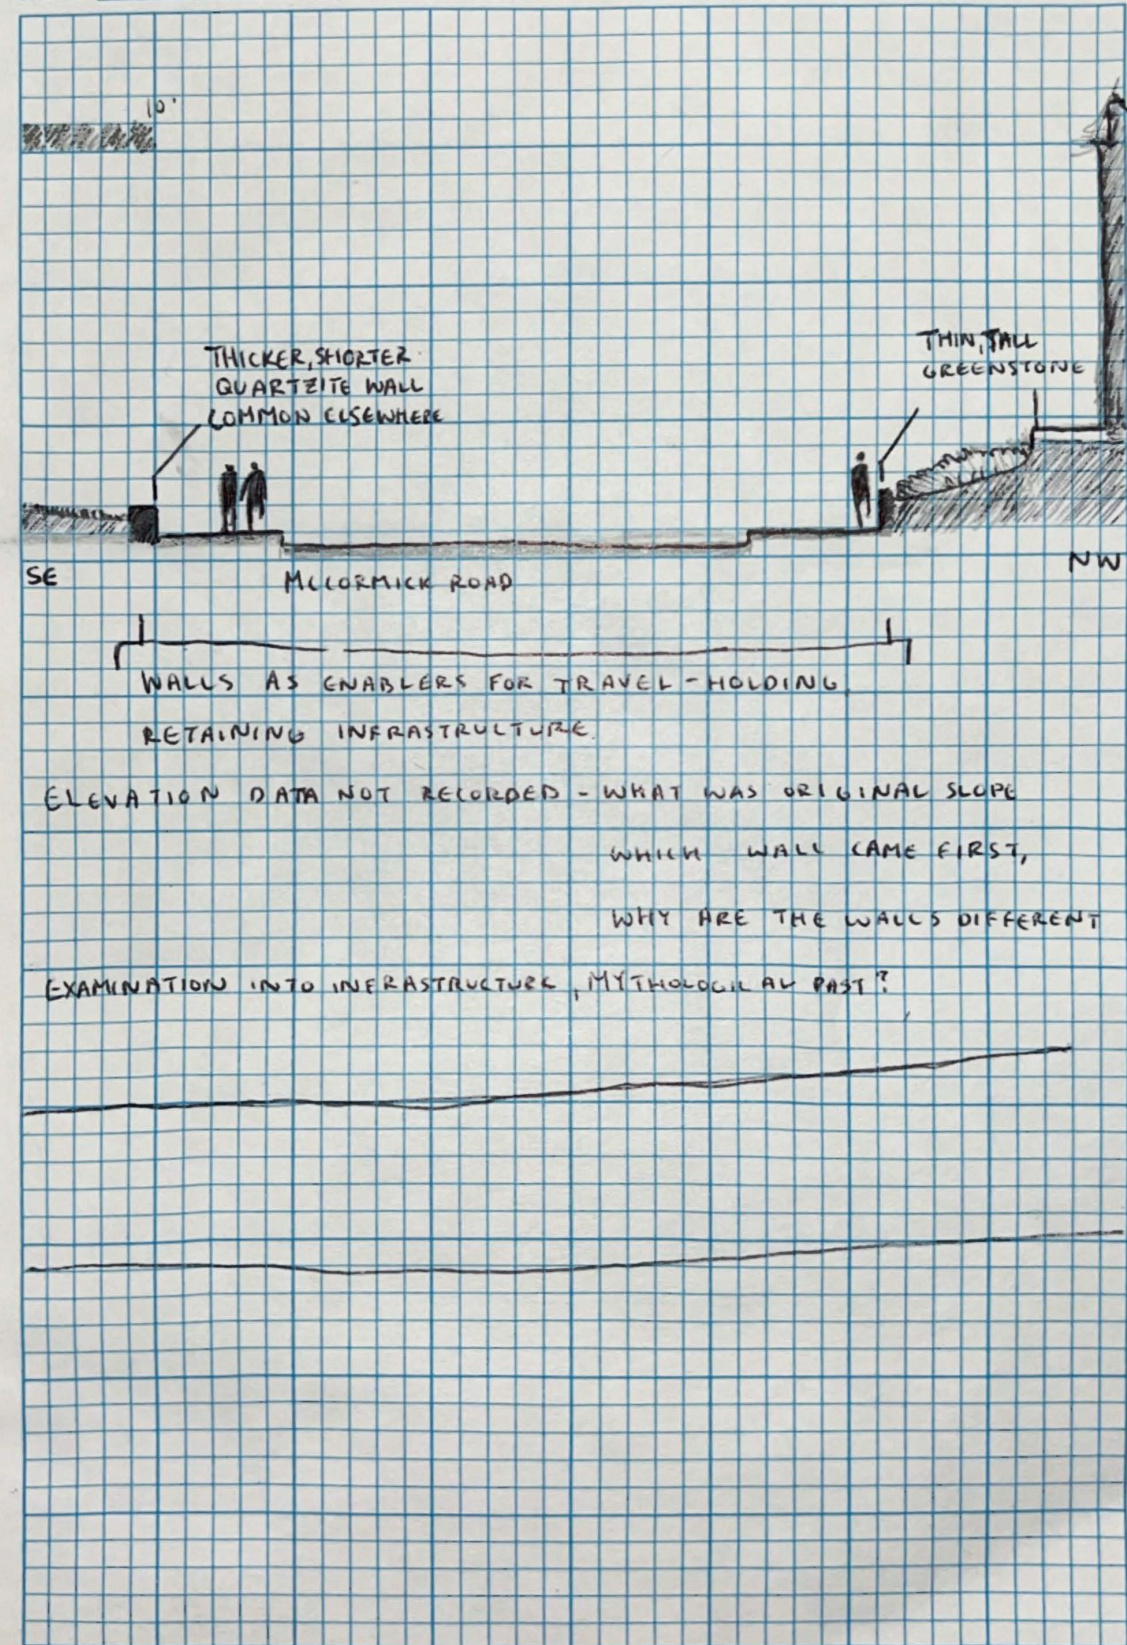 10'
THICKER, SHORTER
QUARTZITE WALL
COMMON ELSEWHERE
THIN, TALL
GREENSTONE
SE
NW
MCCORMICK ROAD
WALLS AS ENABLERS FOR TRAVEL - HOLDING,
RETAINING INFRASTRUCTURE.
ELEVATION DATA NOT RECORDED - WHAT WAS ORIGINAL SLOPE
WHICH WALL CAME FIRST,
WHY ARE THE WALLS DIFFERENT
EXAMINATION INTO INFRASTRUCTURE, MYTHOLOGICAL PAST?